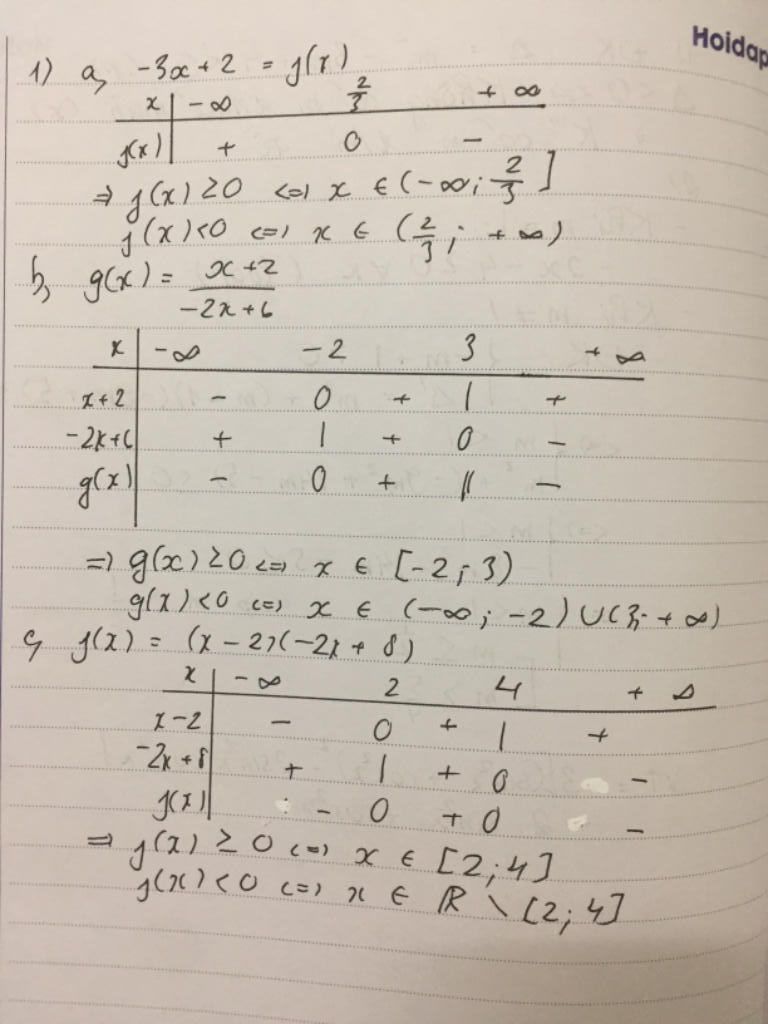 Hoidap
1) a, -3x + 2 = f(x)
x | -∞ 2/3 + ∞
f(x) | + 0 -
⇒ f(x) ≥ 0 <=> x ∈ (-∞; 2/3]
f(x) < 0 <=> x ∈ (2/3; + ∞)
b, g(x) = (x + 2)/(-2x + 6)
x | -∞ -2 3 + ∞
x + 2 | - 0 + | +
-2x + 6 | + | + 0 -
g(x) | - 0 + || -
=> g(x) ≥ 0 <=> x ∈ [-2; 3)
g(x) < 0 <=> x ∈ (-∞; -2) ∪ (3; + ∞)
c, f(x) = (x - 2)(-2x + 8)
x | -∞ 2 4 + ∞
x - 2 | - 0 + | +
-2x + 8 | + | + 0 -
f(x) | - 0 + 0 -
=> f(x) ≥ 0 <=> x ∈ [2; 4]
f(x) < 0 <=> x ∈ ℝ \ [2; 4]